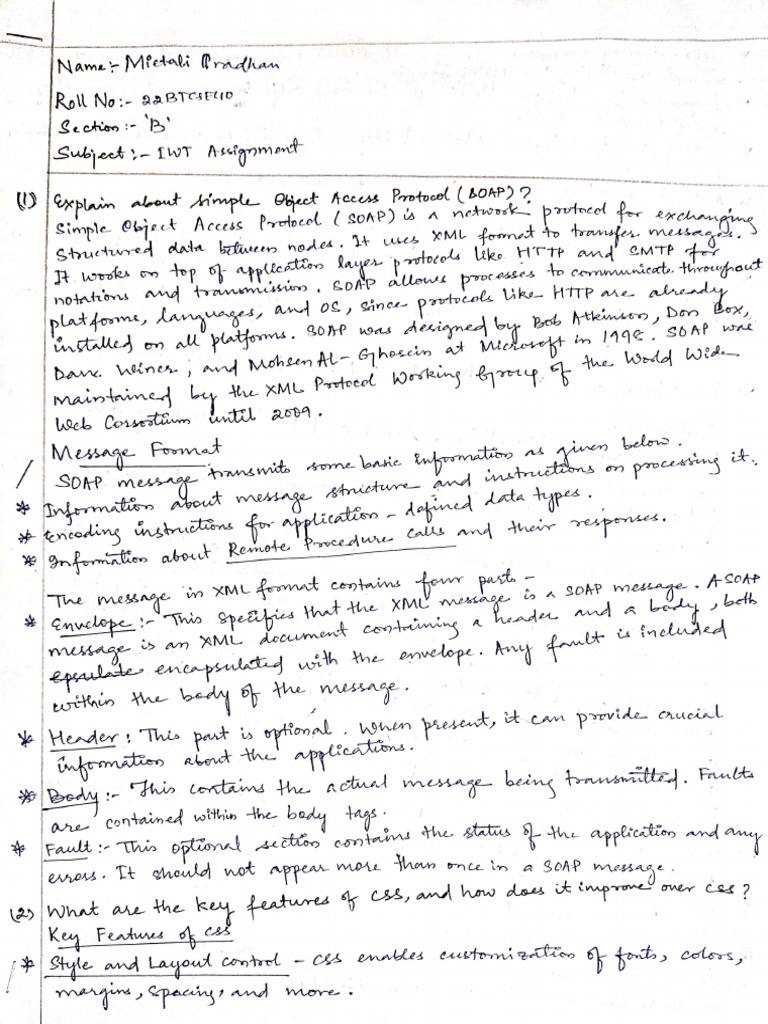 Name:- Mietali Pradhan
Roll No:- 22BTCSE40
Section:- 'B'
Subject:- IWT Assignment
(1) Explain about simple Object Access Protocol (SOAP)?
Simple Object Access Protocol (SOAP) is a network protocol for exchanging
structured data between nodes. It uses XML format to transfer messages.
It works on top of application layer protocols like HTTP and SMTP for
notations and transmission. SOAP allows processes to communicate throughout
platforms, languages, and OS, since protocols like HTTP are already
installed on all platforms. SOAP was designed by Bob Atkinson, Don Box,
Dave Winer, and Mohsen Al-Ghosein at Microsoft in 1998. SOAP was
maintained by the XML Protocol Working Group of the World Wide
Web Consortium until 2009.
Message Format
SOAP message transmits some basic information as given below.
* Information about message structure and instructions on processing it.
* Encoding instructions for application-defined data types.
* Information about Remote Procedure calls and their responses.
The message in XML format contains four parts-
* Envelope:- This specifies that the XML message is a SOAP message. A SOAP
message is an XML document containing a header and a body, both
encapsulated with the envelope. Any fault is included
within the body of the message.
* Header: This part is optional. When present, it can provide crucial
information about the applications.
* Body:- This contains the actual message being transmitted. Faults
are contained within the body tags.
* Fault:- This optional section contains the status of the application and any
errors. It should not appear more than once in a SOAP message.
(2) What are the key features of CSS, and how does it improve over css?
Key Features of CSS
* Style and Layout control - CSS enables customization of fonts, colors,
margins, spacing, and more.